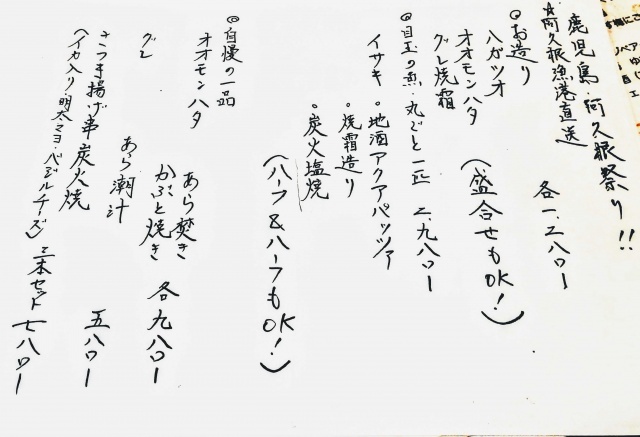 鹿児島・阿久根祭り!!
☆阿久根漁港直送
◎お造り 各一、二八〇ー
ハガツオ
オオモンハタ
グレ焼霜 (盛合せもOK!)
◎目玉の魚・丸ごと一匹 二、九八〇ー
イサキ ・地酒アクアパッツァ
・焼霜造り
・炭火塩焼
(ハーフ&ハーフもOK!)
◎自慢の一品
オオモンハタ あら焚き
かぶと焼き 各九八〇ー
グレ あら潮汁
さつま揚げ串炭火焼 五八〇ー
(イカ入り・明太マヨ・バジルチーズ) 三本セット 七八〇ー